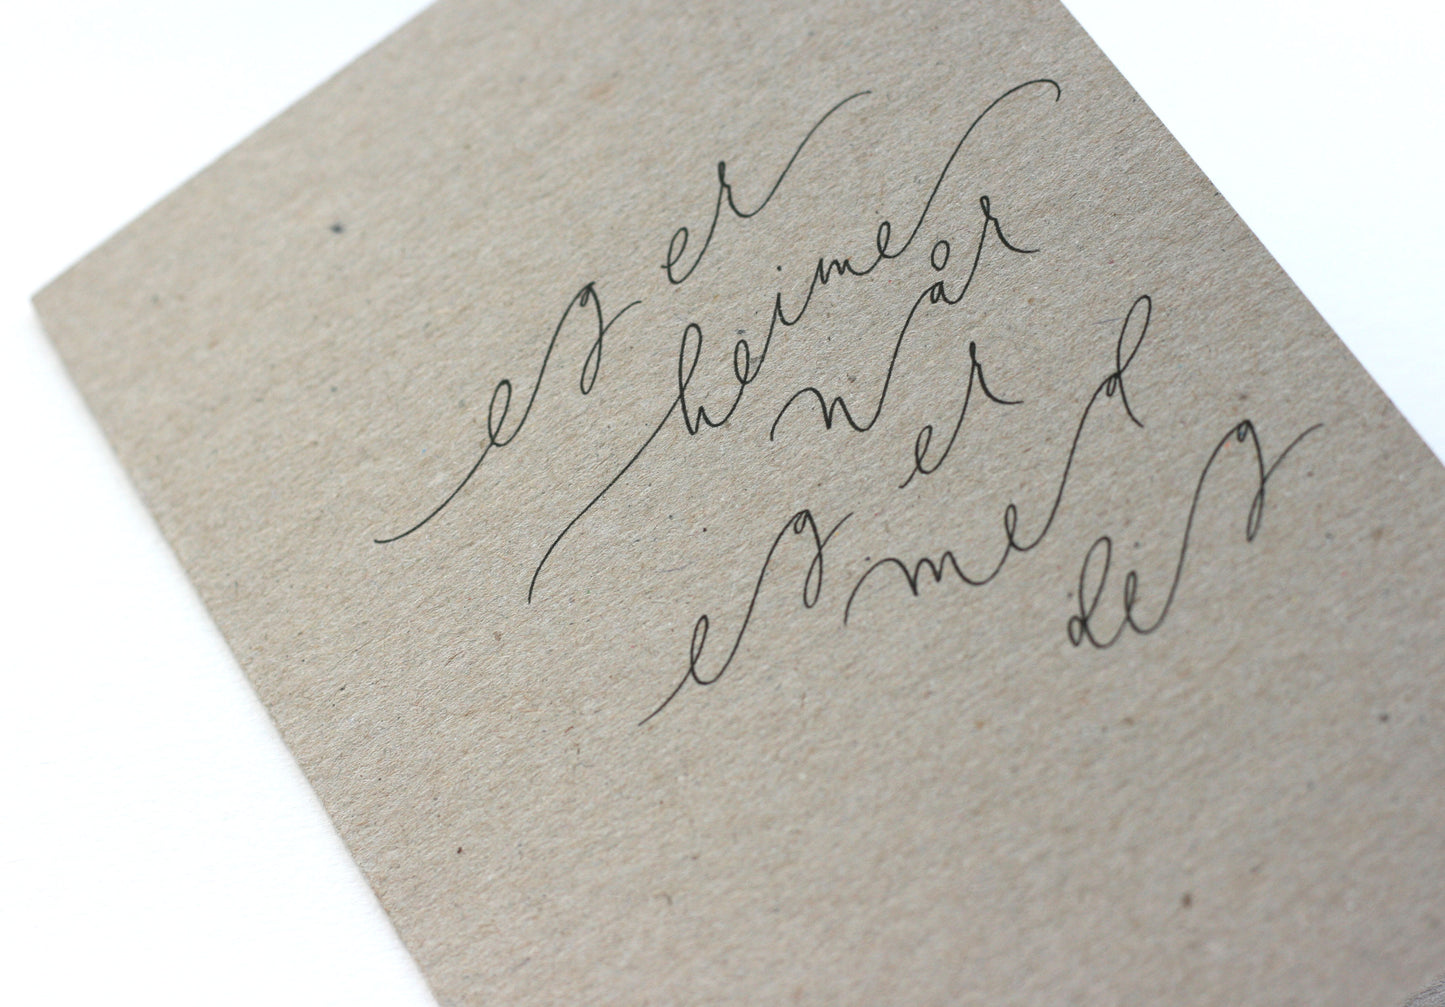 eg er
heime
når
eg er
med
deg